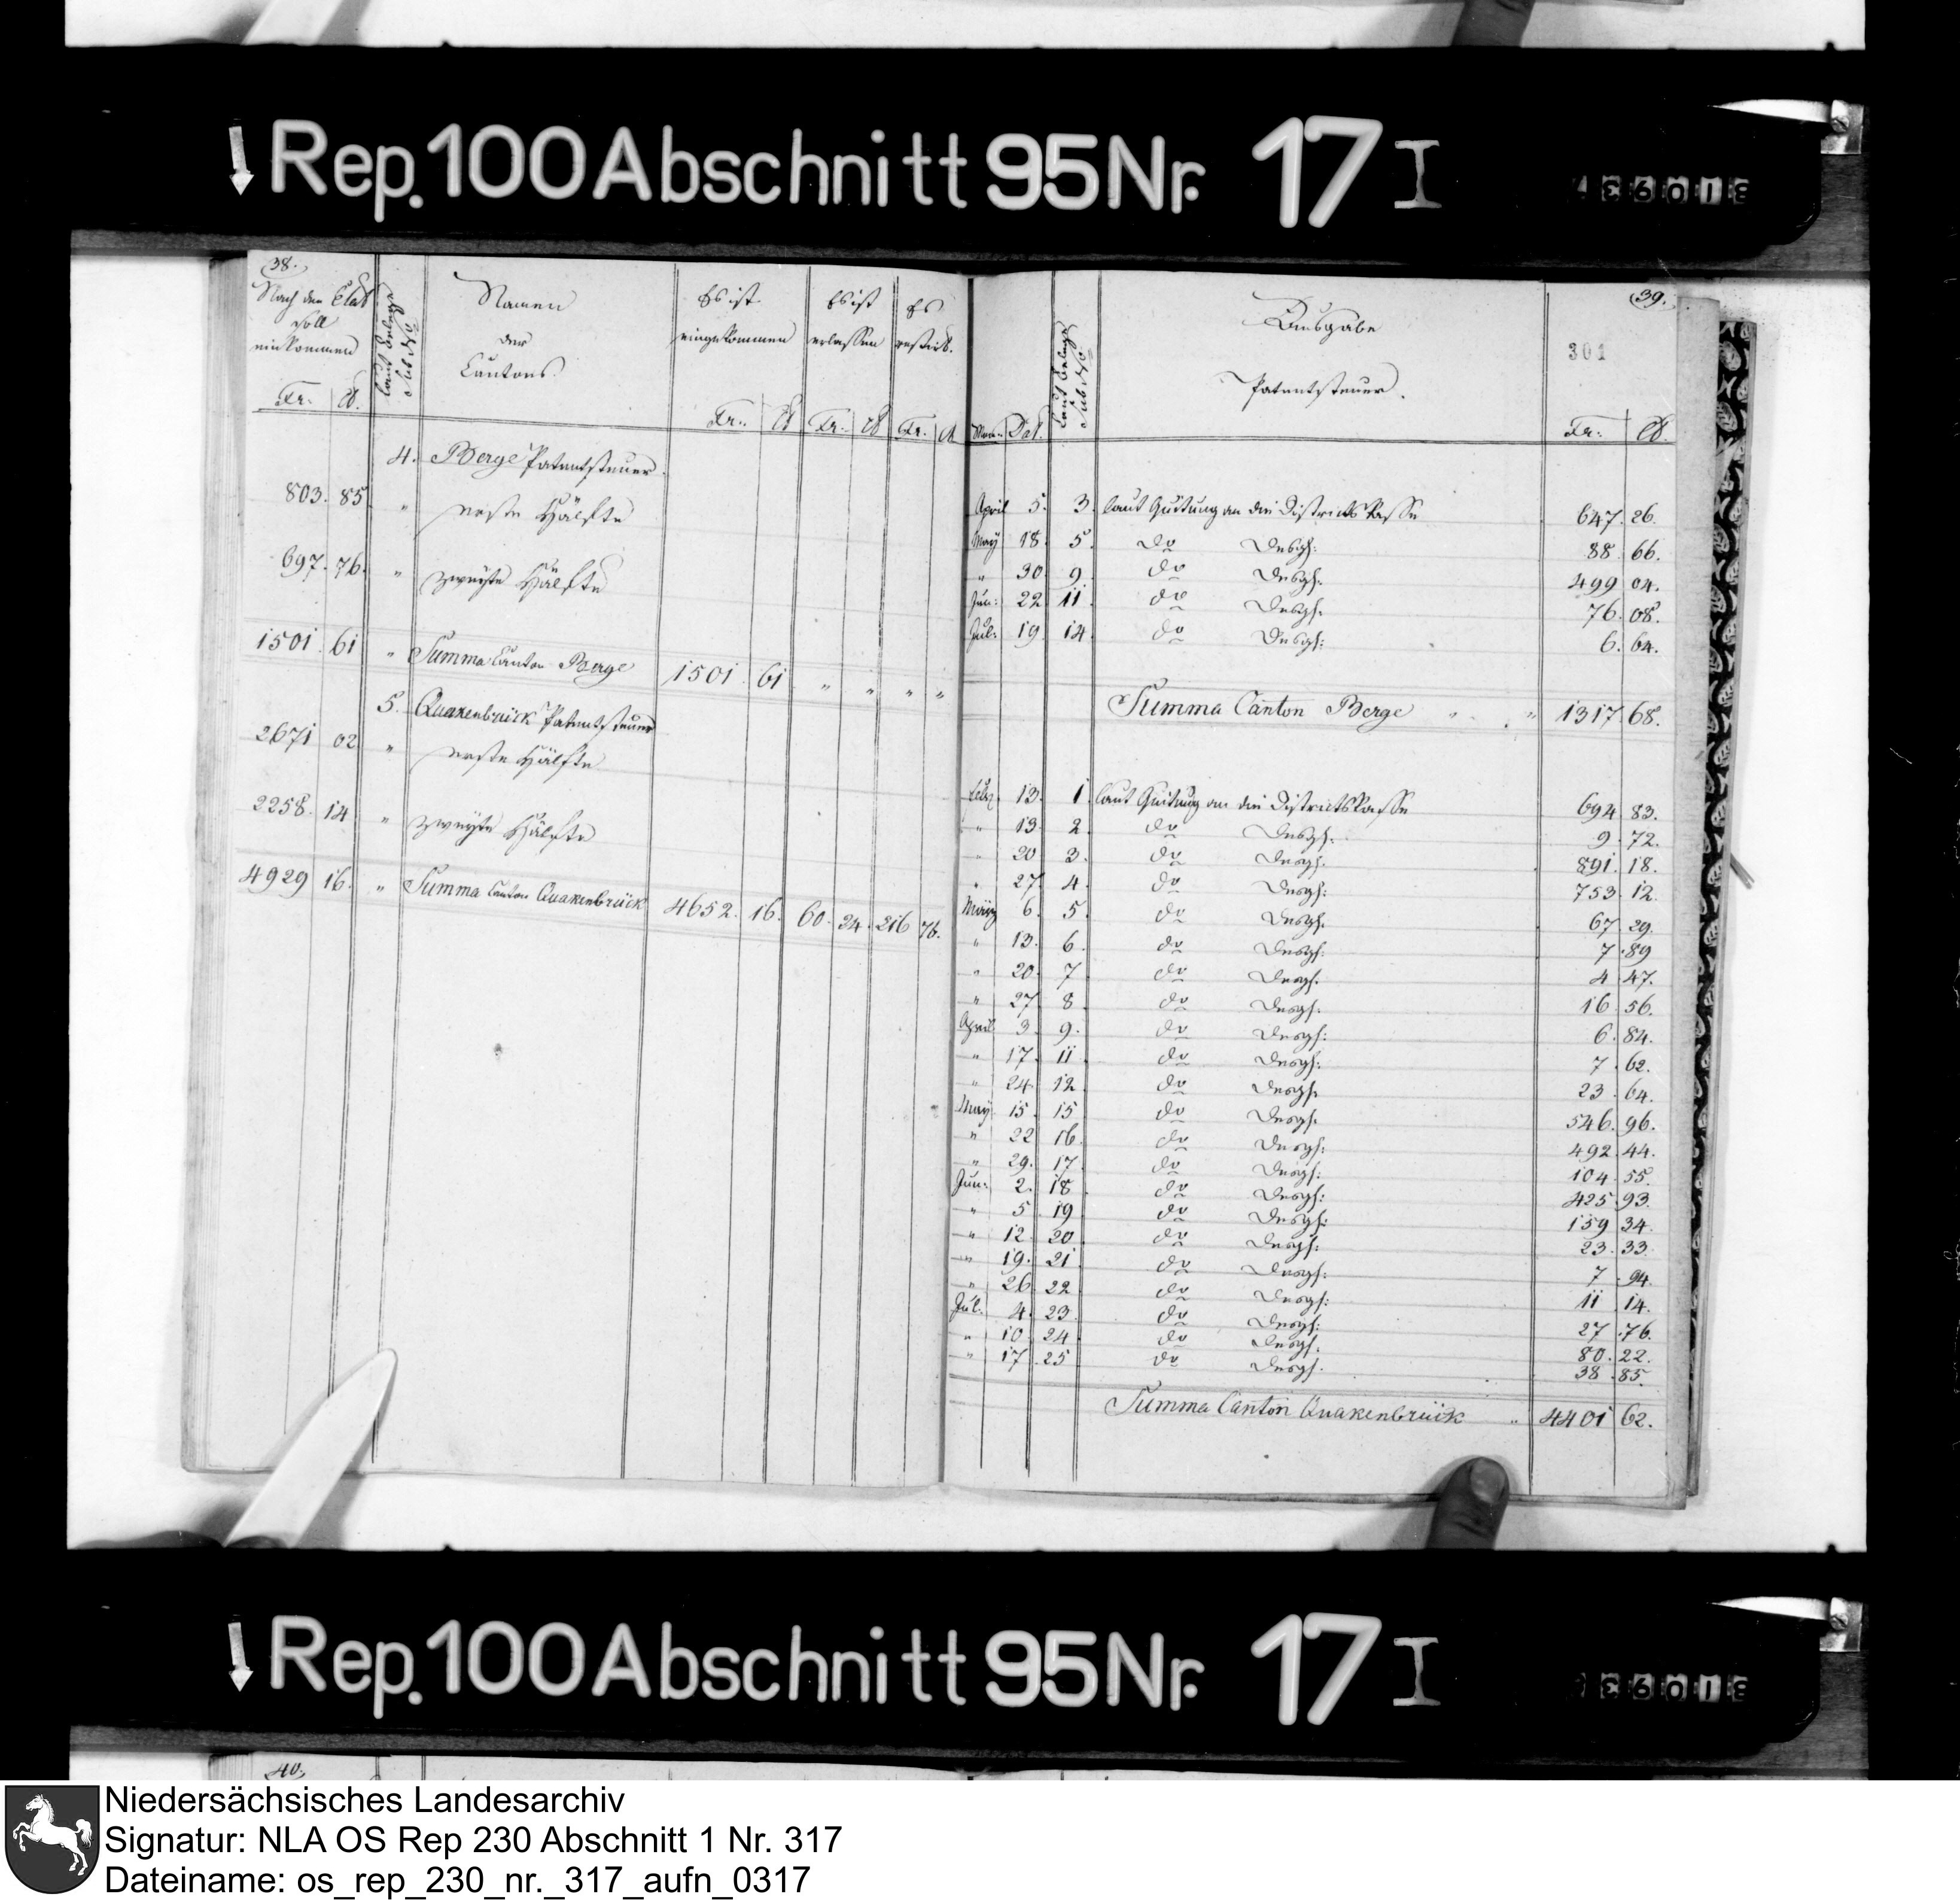 Rep. 100 Abschnitt 95 Nr. 17 I
38.
Nach den Etat
soll
einkommen
Fr. Ct.
laut Belege
sub No
Namen
der
Cantons
Es ist
eingekommen
Fr. Ct
Es ist
erlassen
Fr. Ct
Es
restirt.
Fr. Ct
4. Berge Patentsteuer
803. 85 " erste Hälfte
697. 76. " zweyte Hälfte
1501. 61 " Summa Canton Berge 1501. 61 " " " "
5. Quakenbrück Patentsteuer
2671 02 " erste Hälfte
2258. 14 " zweyte Hälfte
4929 16. " Summa Canton Quakenbrück 4652. 16. 60. 24. 216 76.
39.
301
Mon. Dat.
laut Belege
sub No
Ausgabe
Patentsteuer.
Fr. Ct.
April 5. 3. laut Quitung an die Districts Kasse 647. 26.
May 18. 5. do desgl. 88. 66.
" 30 9. do desgl. 499 04.
Jun. 22 11. do desgl. 76. 08.
Jul. 19. 14. do desgl. 6. 64.
Summa Canton Berge " " 1317. 68.
Febr. 13. 1. laut Quitung an die Districtskasse 694 83.
" 13. 2. do desgl. 9. 72.
" 20 3. do desgl. 891. 18.
" 27. 4. do desgl. 753. 12.
März 6. 5. do desgl. 67 29.
" 13. 6. do desgl. 7. 89
" 20. 7. do desgl. 4. 47.
" 27 8. do desgl. 16. 56.
April 3. 9. do desgl. 6. 84.
" 17. 11. do desgl. 7. 62.
" 24 12. do desgl. 23. 64.
May 15. 15 do desgl. 546. 96.
" 22 16. do desgl. 492. 44.
" 29. 17. do desgl. 104. 55.
Jun. 2. 18 do desgl. 425. 93.
" 5 19 do desgl. 159 34.
" 12. 20 do desgl. 23. 33.
" 19. 21. do desgl. 7. 94.
" 26 22. do desgl. 11. 14.
Jul. 4. 23. do desgl. 27. 76.
" 10. 24 do desgl. 80. 22.
" 17. 25 do desgl. 38. 85.
Summa Canton Quakenbrück " 4401 62.
Rep. 100 Abschnitt 95 Nr. 17 I
40.
Niedersächsisches Landesarchiv
Signatur: NLA OS Rep 230 Abschnitt 1 Nr. 317
Dateiname: os_rep_230_nr._317_aufn_0317